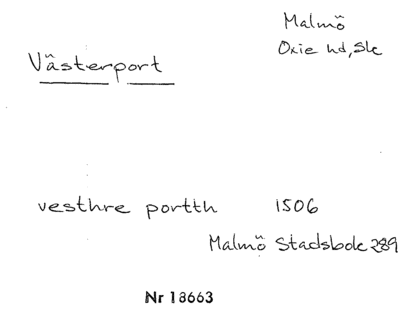 Malmö
Oxie hd, Sk
Västerport
vesthre portth 1506
Malmö Stadsbok 289
Nr 18663